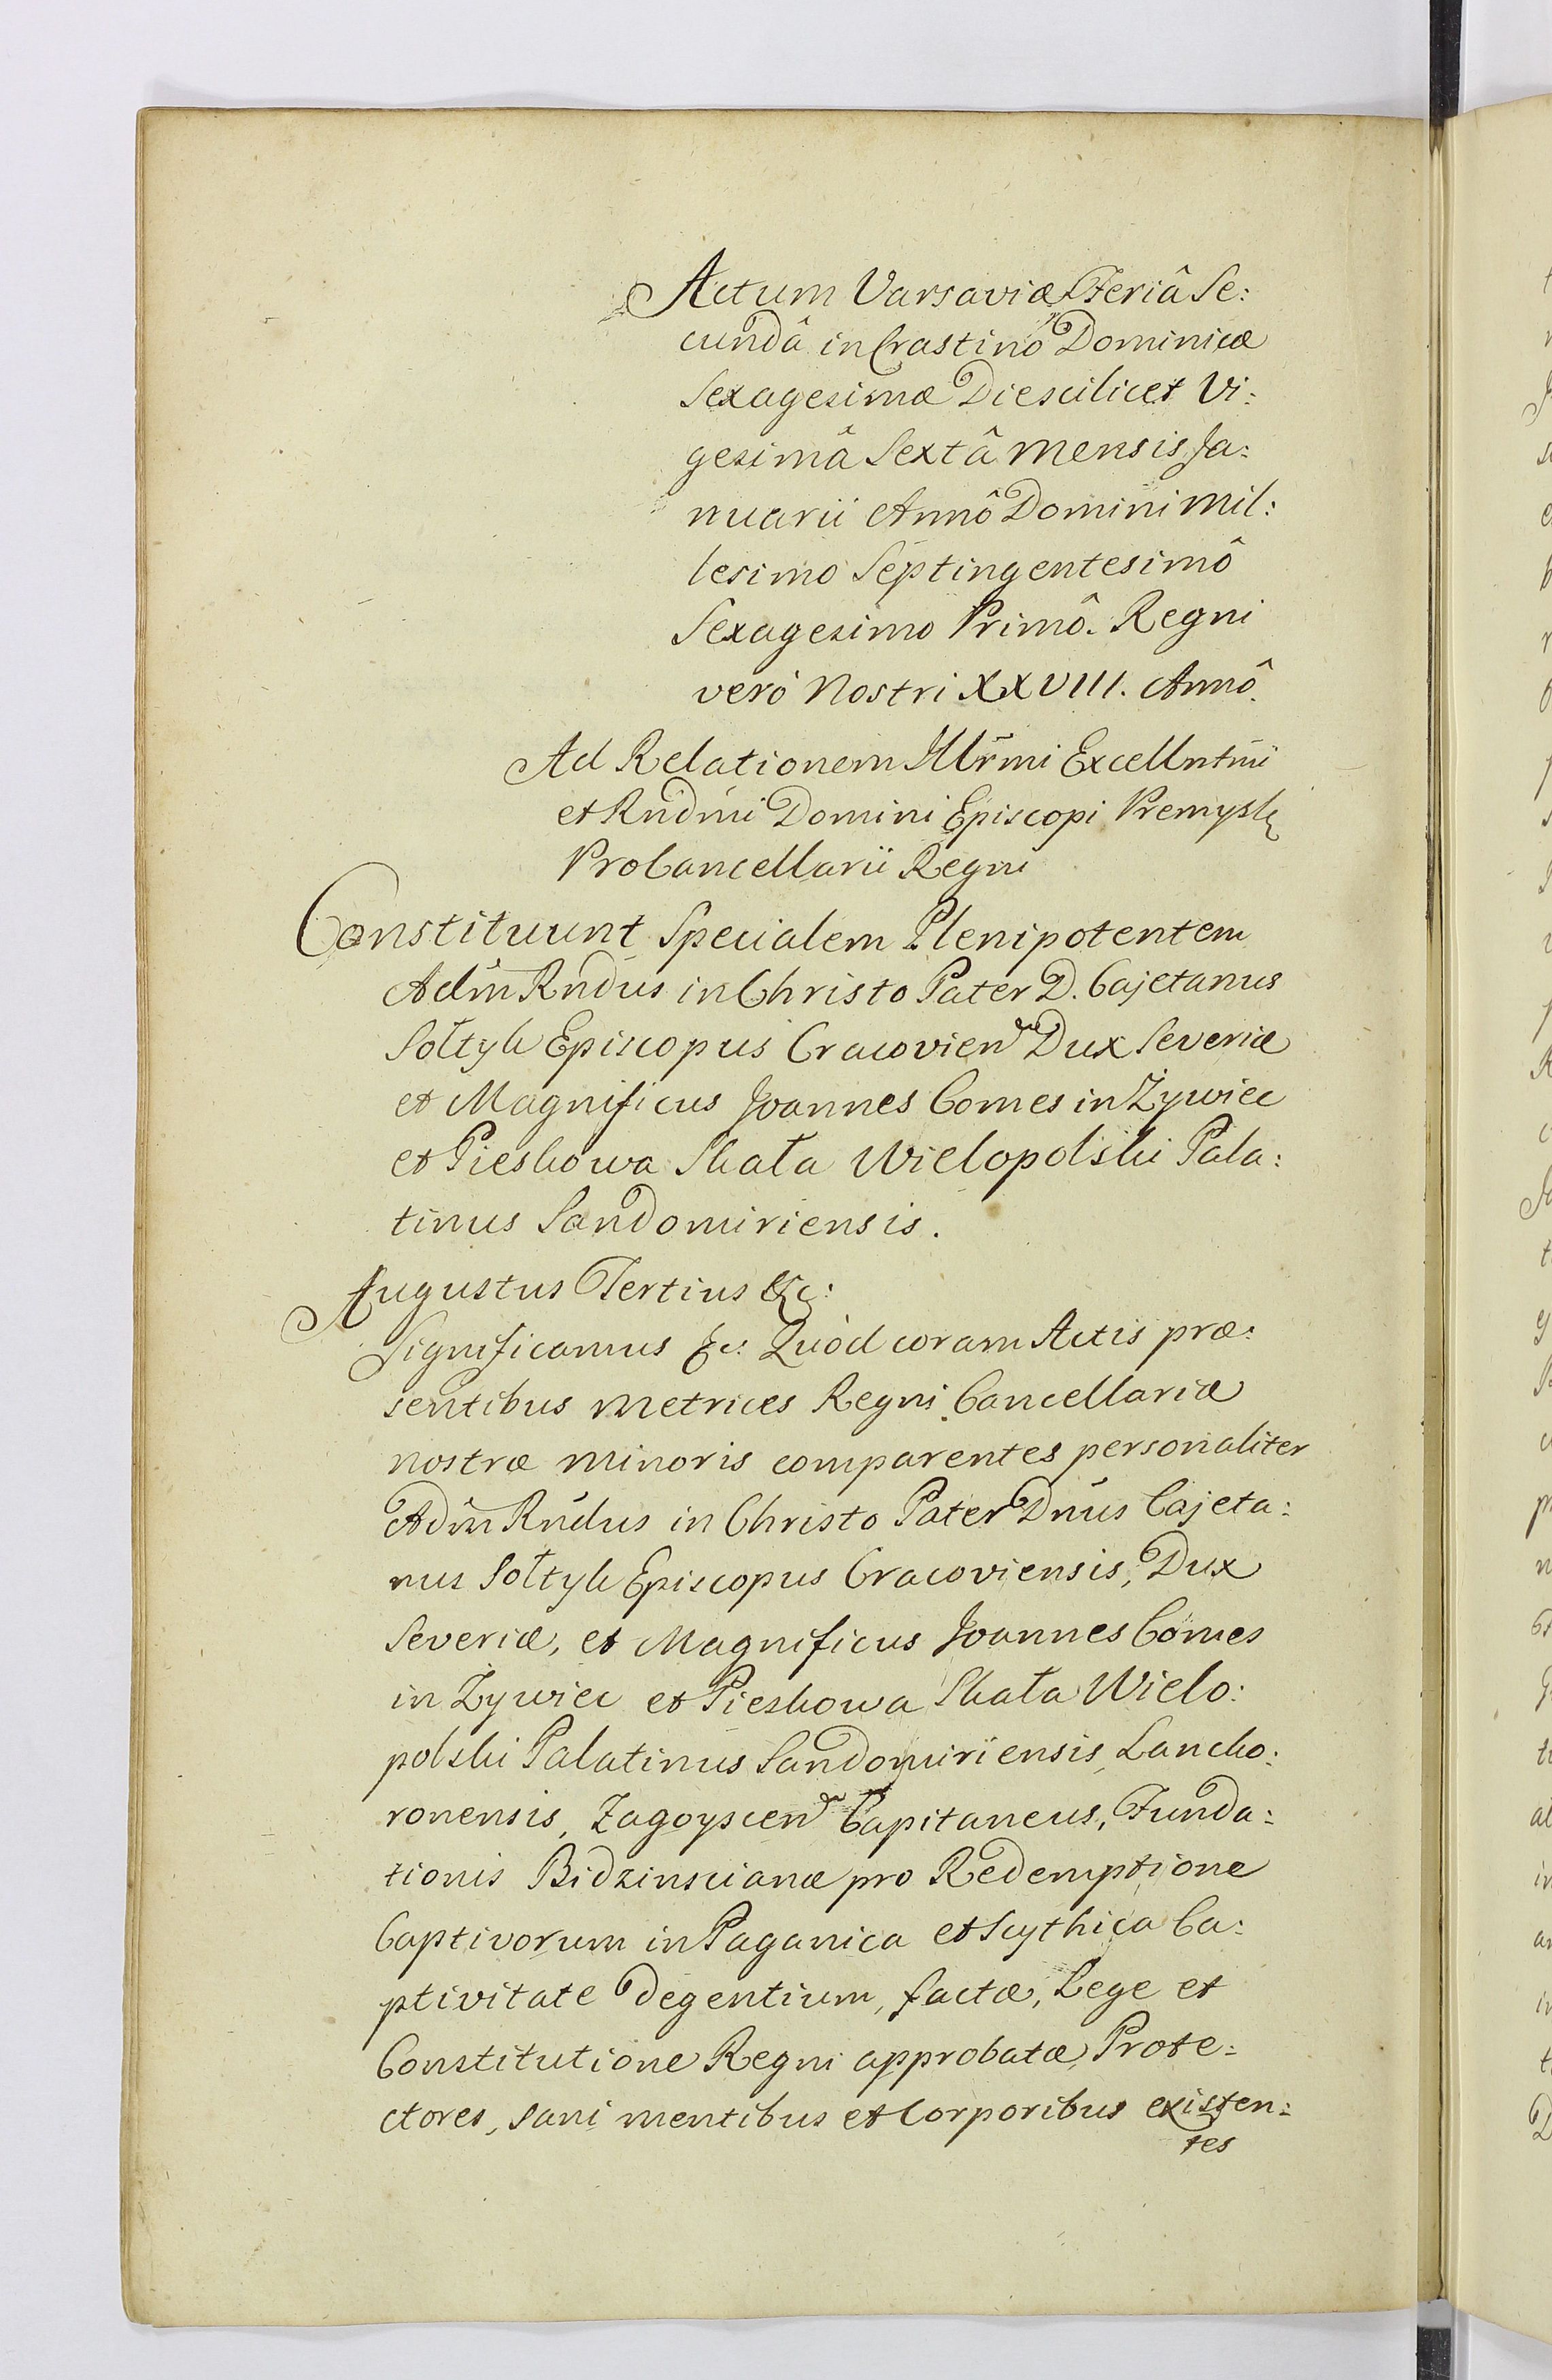 Actum Varsaviæ Feriâ Se:
cundâ in Crastinô Dominicæ
Sexagesimæ Die scilicet Vi:
gesimâ Sextâ Mensis Ja:
nuarii Annô Domini Mil:
lesimo Septingentesimô
Sexagesimo Primô. Regni
verò Nostri XXVIII. Annô.
Ad Relationem Illr̃mi Excellñtmi
et Rñdmi Domini Episcopi Premysl.
ProCancellarii Regni
Constituunt Specialem Plenipotentem
Adm̃ Rñdus in Christo Pater D. Cajetanus
Sołtyk Episcopus Cracovien Dux Severiæ
et Magnificus Joannes Comes in Żywiec
et Pieskowa Skała Wielopolski Pala:
tinus Sandomiriensis.
Augustus Tertius &c:
Significamus &c: Quòd coram Actis præ:
sentibus Metrices Regni Cancellariæ
nostræ minoris comparentes personaliter
Adm̃ Rñdus in Christo Pater Dñus Cajeta:
nus Sołtyk Episcopus Cracoviensis, Dux
Severiæ, et Magnificus Joannes Comes
in Żywiec et Pieskowa Skała Wielo:
polski Palatinus Sandomiriensis, Lancko:
ronensis, Zagoyscen Capitaneus, Funda:
tionis Bidzinscianæ pro Redemptione
Captivorum in Paganica et Scythica Ca:
ptivitate degentium, factæ, Lege et
Constitutione Regni approbatæ, Prote:
ctores, sani mentibus et Corporibus existen:
tes